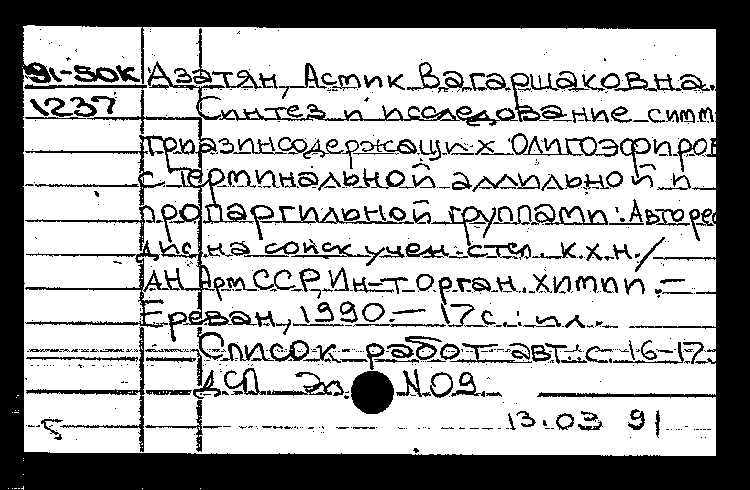 91-50К Азатян, Астик Вагаршаковна.
1237 Синтез и исследование симм
триазинсодержащих олигоэфиров
с терминальной аллильной и
пропаргильной группами: Авторе
дис. на соиск. учен. степ. к.х.н./
АН АрмССР, Ин-т орган. химии.—
Ереван, 1990.— 17 с.: ил.
Список работ авт.: с. 16-17.
ДСП Эк N 09.
13.03 91
5